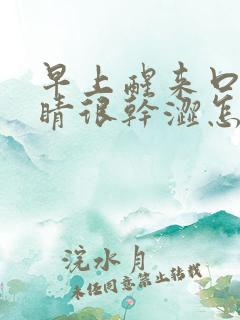 早上醒来口
睛很幹澀怎
浣水月
未任同意禁止转载